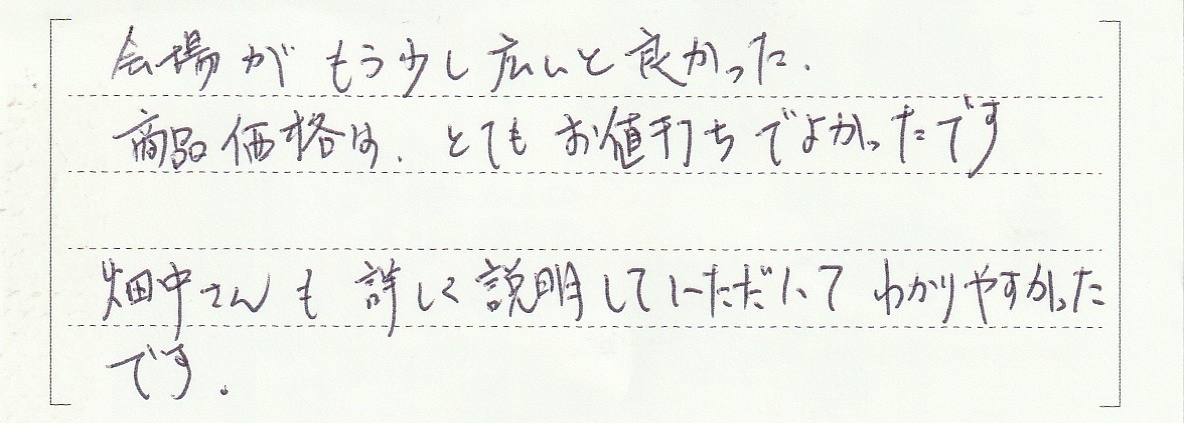 会場がもう少し広いと良かった.
商品価格は、とてもお値打ちでよかったです
畑中さんも詳しく説明していただいてわかりやすかった
です.